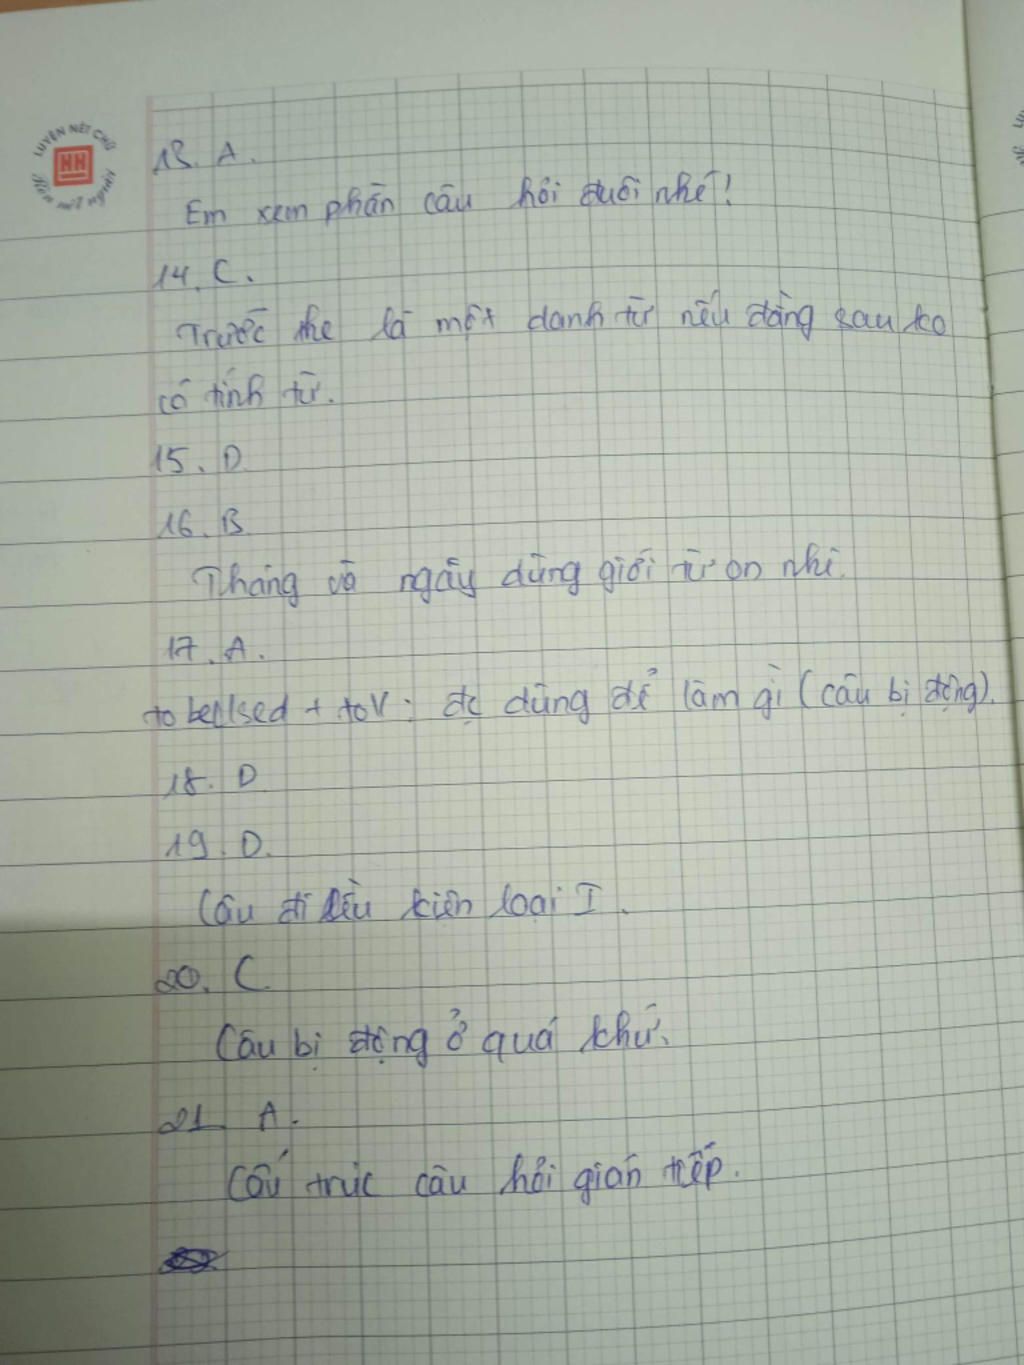 LUYỆN NÉT CHỮ
HH
Rèn nết người
13. A.
Em xem phần câu hỏi đuôi nhé!
14. C.
Trước the là một danh từ nếu đằng sau ko
có tính từ.
15. D
16. B
Tháng và ngày dùng giới từ on nhỉ.
17. A.
to be Used + toV: đc dùng để làm gì (câu bị động).
18. D
19. D.
Câu điều kiện loại I.
20. C
Câu bị động ở quá khứ.
21 A.
Cấu trúc câu hỏi gián tiếp.